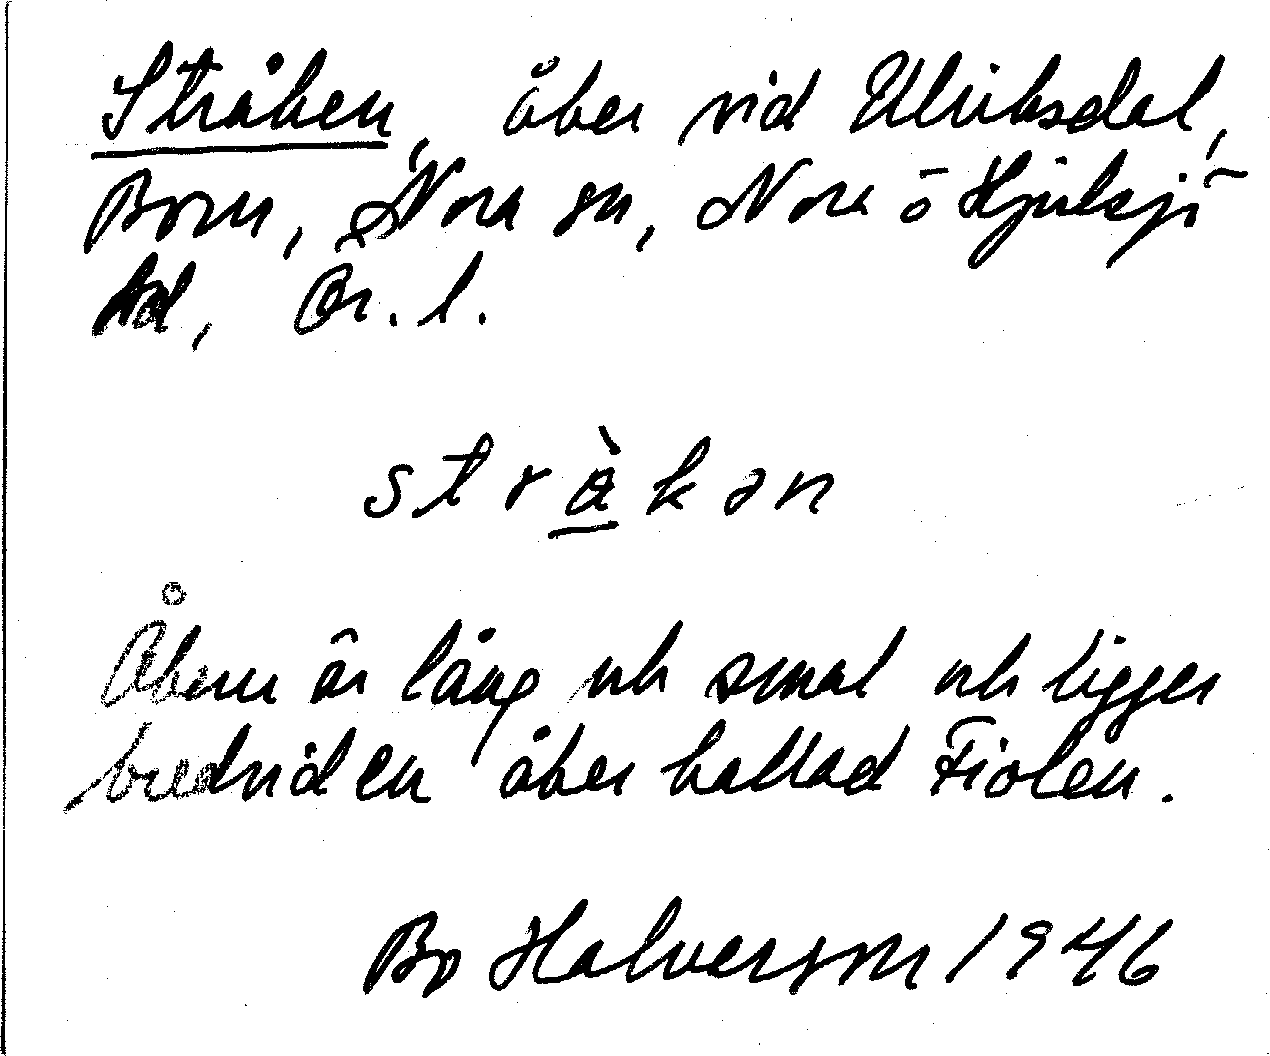 Stråken, åker vid Ulriksdal,
Born, Nora sn, Nora ō Hjulsjö
hd, Ör. l.
stràkən
Åkern är lång och smal och ligger
bredvid en åker kallad Fiolen.
Bo Halverson 1946